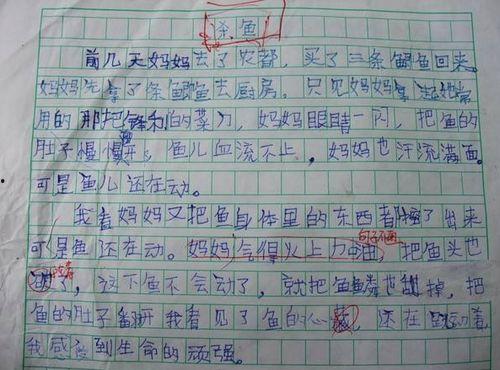 杀鱼
前几天妈妈去了农都，买了三条鲫鱼回来。
妈妈先拿了条鲫鱼去厨房。只见妈妈拿起她常
用的那把锋利的菜刀，妈妈眼睛一闪，把鱼的
肚子慢慢，鱼儿血流不止，妈妈也汗流满面。
可是鱼儿还在动。
我看妈妈又把鱼身体里的东西都了出来
句子不通
可是鱼还在动。妈妈气得火上，把鱼头也
了，这下鱼不会动了，就把鱼鳞也掉，把
鱼的肚子翻开我看见了鱼的心，还在动着，
我感到生命的顽强。